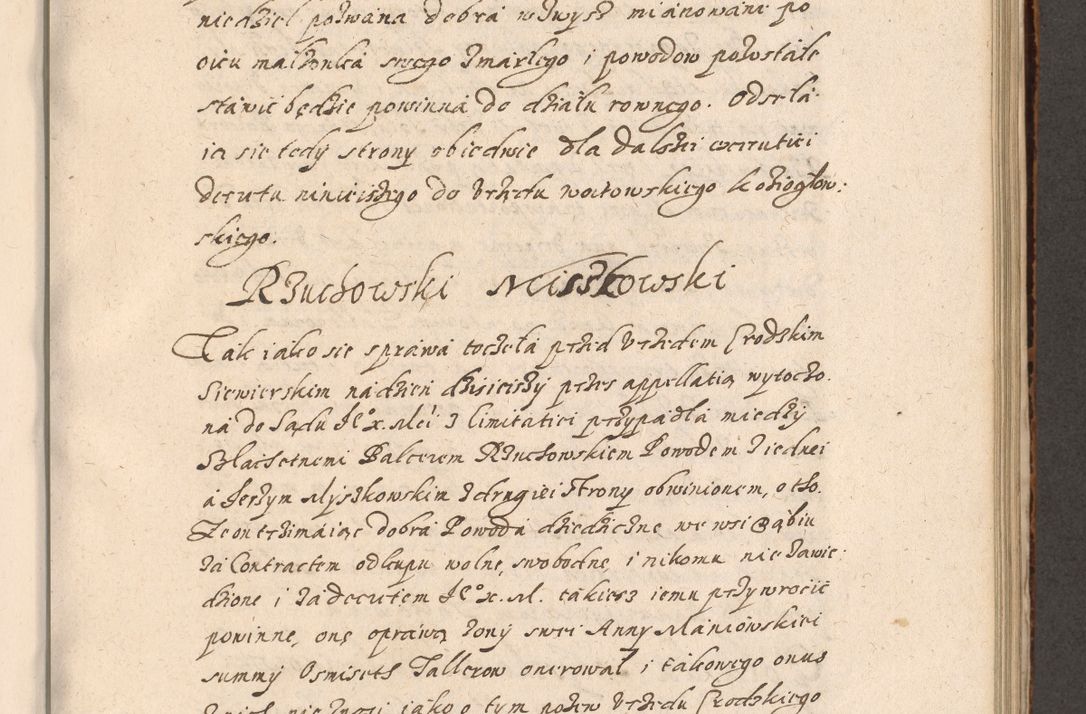 niedziel pozwana dobra wzwysz mianowane po
oicu małzonka swego zmarłego i powodow pozostałe
stawic będzie powinna do działu rownego. Odseła-
ią się tedy strony obiedwie dla dalszei executiei
decretu ninieiszego do Vrzędu woitowskiego Koziogłow-
skiego.
Rzuchowski Miszkowski
Tak iako się sprawa toczeła przed Vrzędem Grodzkim
Siewierskim na dzień dzisieiszy przes appellatią wytoczo-
na do Sądu Je° x. Mci z limitatiei przypadła miedzy
Szlachetnemi Balcerem Rzuchowskiem Powodem z iednei
a Jerzym Myszkowskim z drugiei strony obwinionem, o tho.
Ze on trzimaiąc dobra Powoda dziedziczne we wsi Bąbiu
za Contractem odkupu wolne, swobodne, i nikomu nie zawie-
dzione i za decretem Je° x. M. takiesz iemu przywrocić
powinne, onę oprawą zony swei Anny Maniowskiei
summy Osmiseth Tallerow onerował i takowego onus
zniesc nie chcei iako o tym pozew Vrzędu Grodzkiego